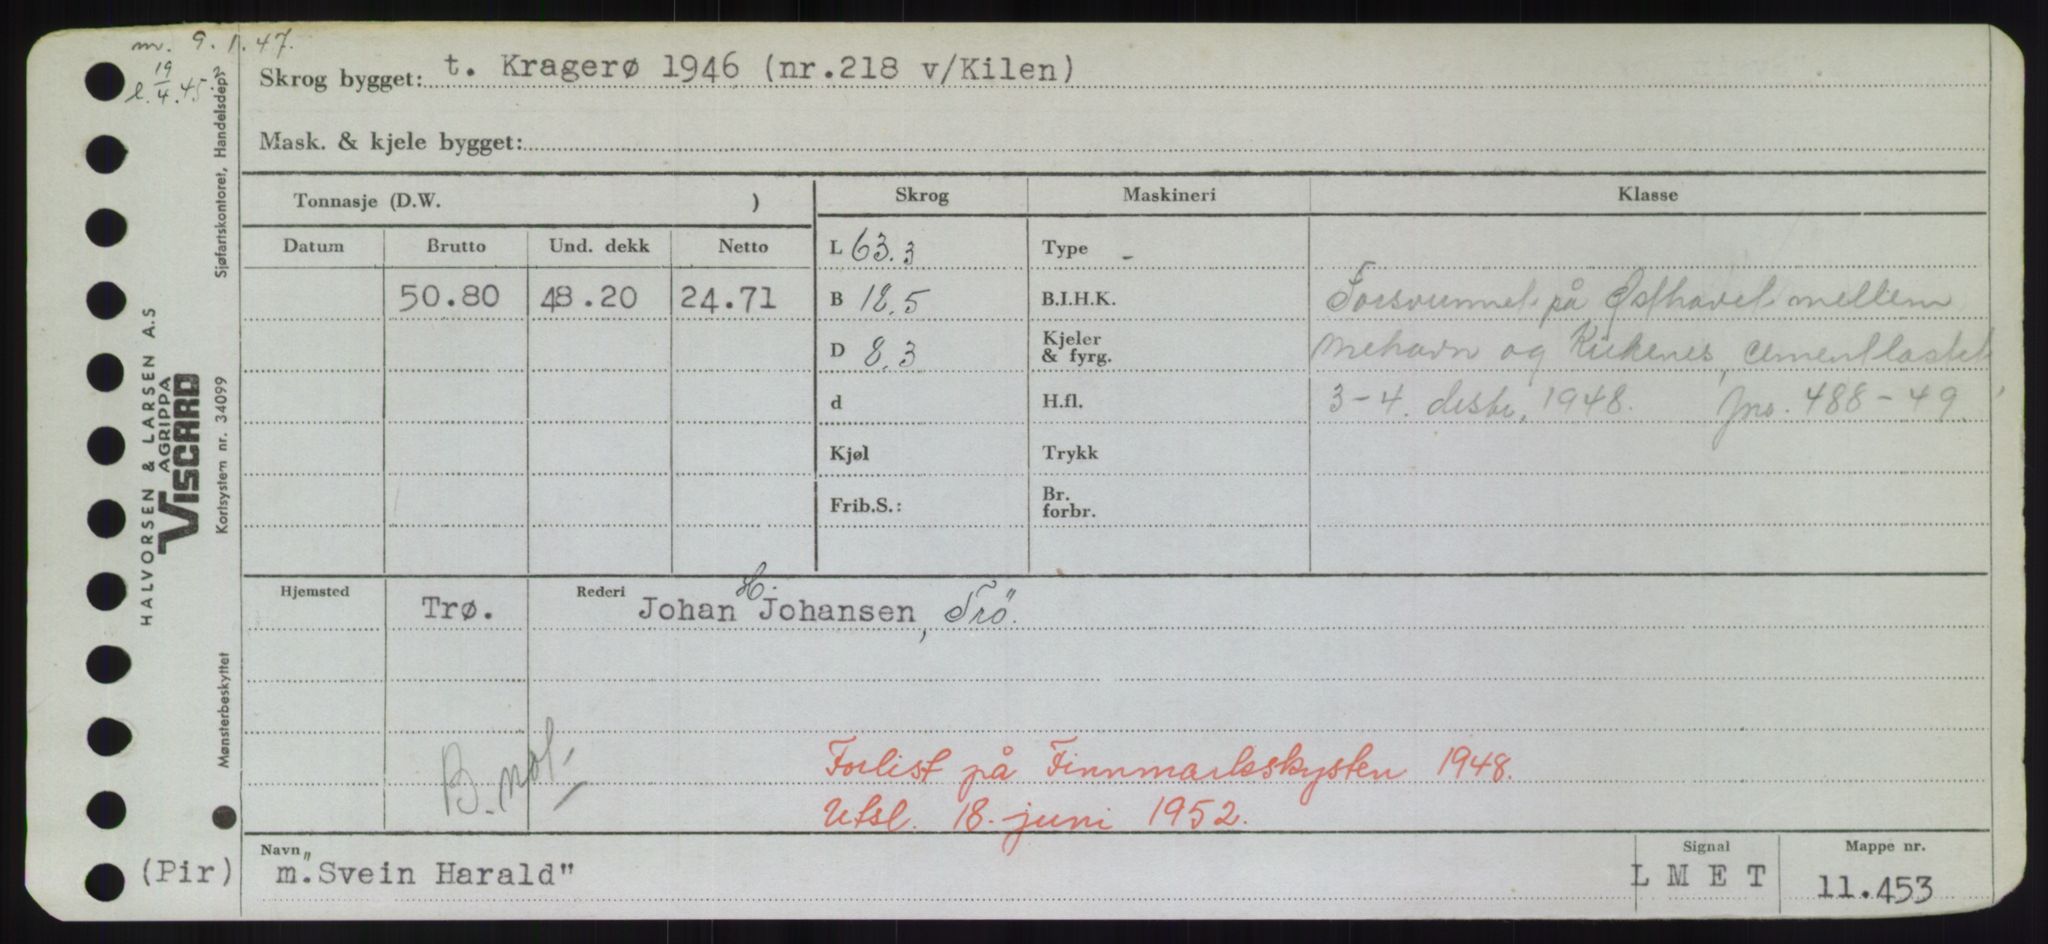 m. 9.1.47.
l. 19/4.45.
Skrog bygget: t. Kragerø 1946 (nr.218 v/Kilen)
Mask. & kjele bygget:
Tonnasje (D.W. )
Skrog Maskineri Klasse
Datum Brutto Und. dekk Netto
L 63.3 Type -
50.80 48.20 24.71
B 18.5 B.I.H.K.
Forsvunnet på Østhavet mellem
D 8.3 Kjeler & fyrg.
Mehavn og Kirkenes, cementlastet
d H.fl.
3-4. desbr. 1948. jno. 488-49.
Kjøl Trykk
Frib.S.: Br. forbr.
Hjemsted Trø. Rederi Johan H. Johansen, Trö.
B. not.
Forlist på Finnmarkskysten 1948.
Utsl. 18. juni 1952.
(Pir)
Navn m."Svein Harald"
Signal L M E T
Mappe nr. 11.453
HALVORSEN & LARSEN A.S
AGRIPPA
VISCARD
Mønsterbeskyttet Kortsystem nr. 34099 Sjøfartskontoret, Handelsdep.